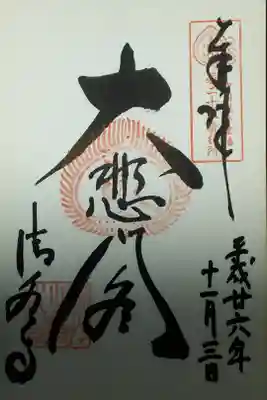 奉拝
平成廿六年
十一月三日
大悲閣
清水寺